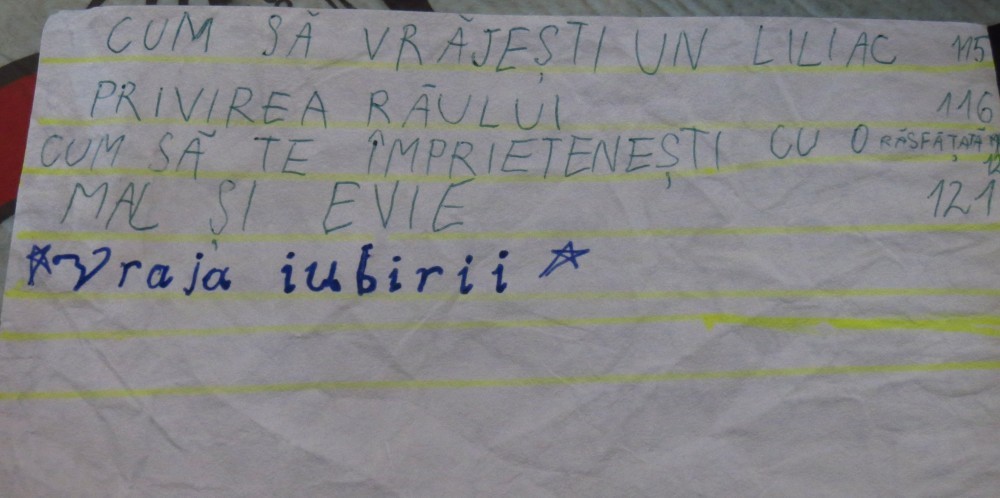 CUM SĂ VRĂJEȘTI UN LILIAC 115
PRIVIREA RĂULUI 116
CUM SĂ TE ÎMPRIETENEȘTI CU O RĂSFĂȚATĂ
MAL ȘI EVIE 121
Vraja iubirii